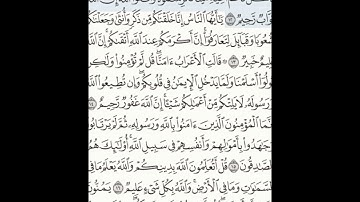 تَوَّابٌ رَّحِيمٌ ١٢ يَٰٓأَيُّهَا ٱلنَّاسُ إِنَّا خَلَقْنَٰكُم مِّن ذَكَرٍ وَأُنثَىٰ وَجَعَلْنَٰكُمْ
شُعُوبًا وَقَبَآئِلَ لِتَعَارَفُوٓا۟ إِنَّ أَكْرَمَكُمْ عِندَ ٱللَّهِ أَتْقَىٰكُمْ إِنَّ ٱللَّهَ
عَلِيمٌ خَبِيرٌ ١٣ قَالَتِ ٱلْأَعْرَابُ ءَامَنَّا قُل لَّمْ تُؤْمِنُوا۟ وَلَٰكِن
قُولُوٓا۟ أَسْلَمْنَا وَلَمَّا يَدْخُلِ ٱلْإِيمَٰنُ فِى قُلُوبِكُمْ وَإِن تُطِيعُوا۟ ٱللَّهَ
وَرَسُولَهُۥ لَا يَلِتْكُم مِّنْ أَعْمَٰلِكُمْ شَيْـًٔا إِنَّ ٱللَّهَ غَفُورٌ رَّحِيمٌ ١٤
إِنَّمَا ٱلْمُؤْمِنُونَ ٱلَّذِينَ ءَامَنُوا۟ بِٱللَّهِ وَرَسُولِهِۦ ثُمَّ لَمْ يَرْتَابُوا۟
وَجَٰهَدُوا۟ بِأَمْوَٰلِهِمْ وَأَنفُسِهِمْ فِى سَبِيلِ ٱللَّهِ أُو۟لَٰٓئِكَ هُمُ
ٱلصَّٰدِقُونَ ١٥ قُلْ أَتُعَلِّمُونَ ٱللَّهَ بِدِينِكُمْ وَٱللَّهُ يَعْلَمُ مَا فِى
ٱلسَّمَٰوَٰتِ وَمَا فِى ٱلْأَرْضِ وَٱللَّهُ بِكُلِّ شَىْءٍ عَلِيمٌ ١٦ يَمُنُّونَ